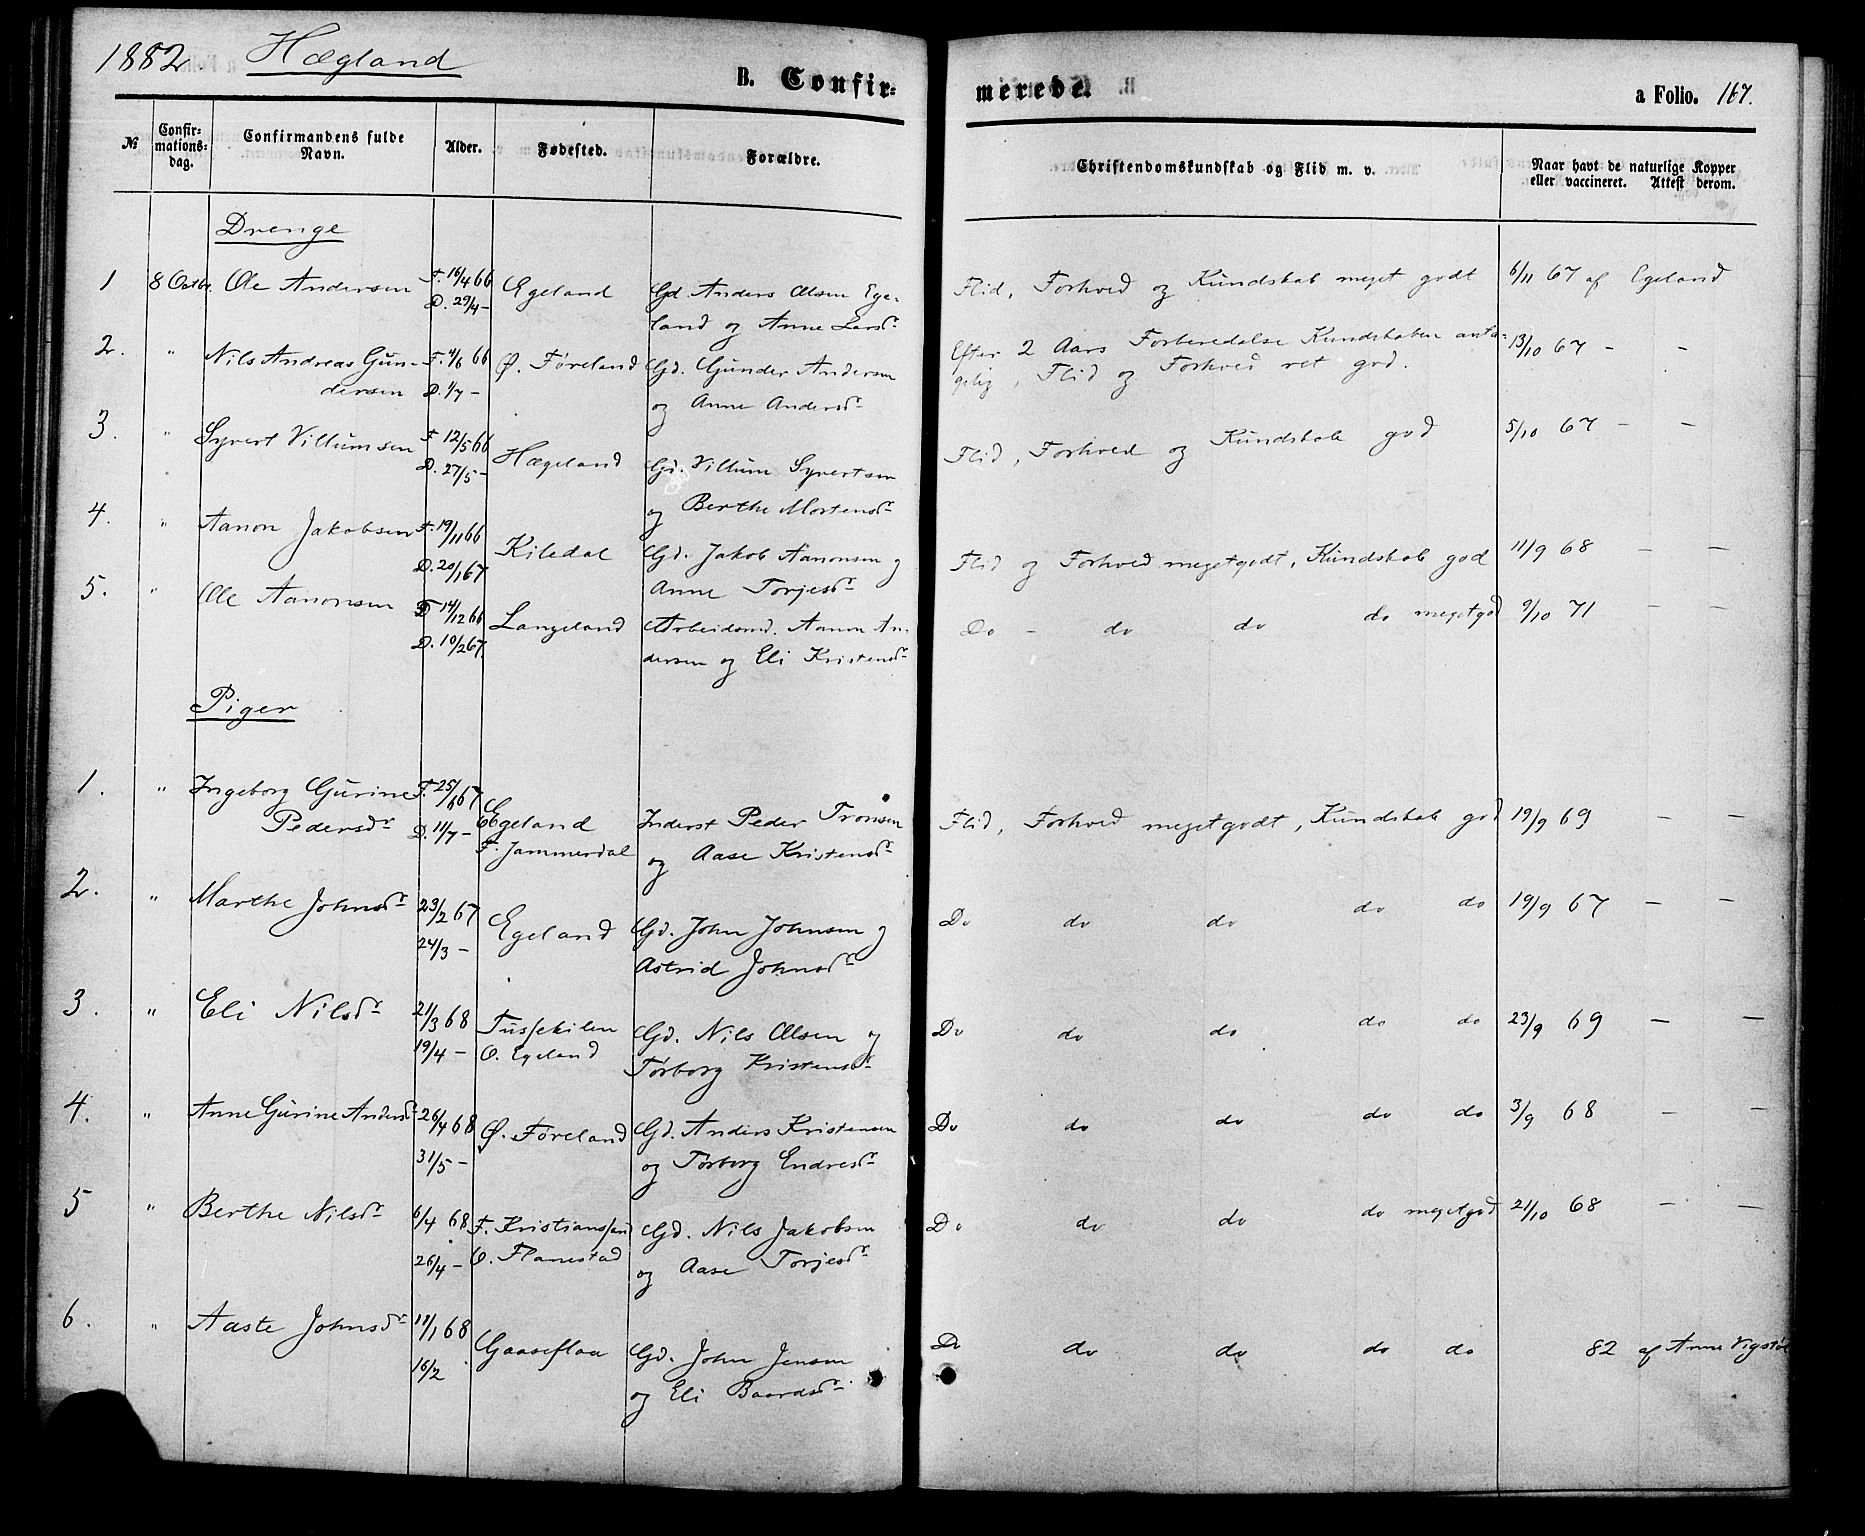 1882 Hægland
B. Confirmerede. a Folio. 167.
№ Confirmationsdag. Confirmandens fulde Navn. Alder. Fødested. Forældre. Christendomskundskab og Flid m. v. Naar havt de naturlige Kopper eller vaccineret. Attest derom.
Drenge
1 8 Octbr Ole Andersen F. 16/4 66 Egeland Gd. Anders Olsen Ege- Flid, Forhold og Kundskab meget godt 6/11 67 af Egeland
D. 29/4 - land og Anne Larsdr
2. " Nils Andreas Gun- F. 4/6 66 Ø. Føreland Gd. Gunder Andersen Efter 2 Aars Forberedelse Kundskaben anta- 13/10 67 - -
dersen D. 1/7 - og Anne Andersdr gelig, Flid og Forhold ret god.
3. " Syvert Villumsen F. 12/5 66 Hægeland Gd. Villum Syvertsen Flid, Forhold og Kundskab god 5/10 67 - -
D. 27/5 - og Berthe Mortensdr
4. " Aanon Jakobsen F. 19/11 66 Kiledal Gd. Jakob Aanonsen og Flid og Forhold megetgodt, Kundskab god 11/9 68 - -
D. 20/1 67 Anne Torjesdr
5. " Ole Aanonsen F 14/12 66 Langeland Arbeidsmd. Aanon An- Do - do do do megetgod 9/10 71 - -
D. 10/2 67. dersen og Eli Kristensdr
Piger
1. " Ingeborg Gurine F. 25/6 67 Egeland Inderst Peder Tronsen Flid, Forhold megetgodt, Kundskab god 19/9 69 - -
Pedersdr D. 11/7 - F. Jammerdal og Aase Kristensdr
2. " Marthe Johnsdr 23/2 67 Egeland Gd. John Johnsen og Do do do do do 19/9 67 - -
24/3 - Astrid Johnsdr
3. " Eli Nilsdr 21/3 68 Tussekilen Gd. Nils Olsen og Do do do do do 23/9 69 - -
19/4 - O. Egeland Tørborg Kristensdr
4. " Anne Gurine Andersdr 26/4 68 Ø. Føreland Gd. Anders Kristensen Do do do do do 3/9 68 - -
31/5 - og Tørborg Endresdr
5 " Berthe Nilsdr 6/4 68 F. Kristianssand Gd. Nils Jakobsen Do do do do megetgod 21/10 68 - -
26/4 - O. Flanestad og Aase Torjesdr
6. " Aaste Johnsdr 11/1 68 Gaaseflaa Gd. John Jensen Do do do do do 82 af Anne Vigstøl
16/2 og Eli Baardsdr